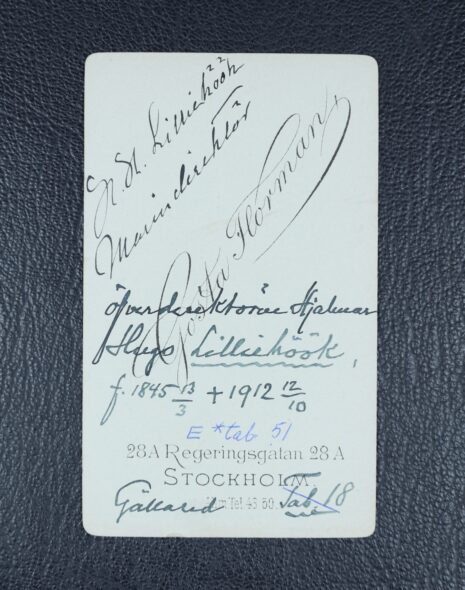 H. H. Lilliehöök
Marindirektör
Gösta Florman
öfverdirektören Hjalmar
Hugo Lilliehöök,
f. 1845 13/3 + 1912 12/10
E *tab 51
28A Regeringsgatan 28A
STOCKHOLM.
Tel. 43 50. Tab. 18
Gällared